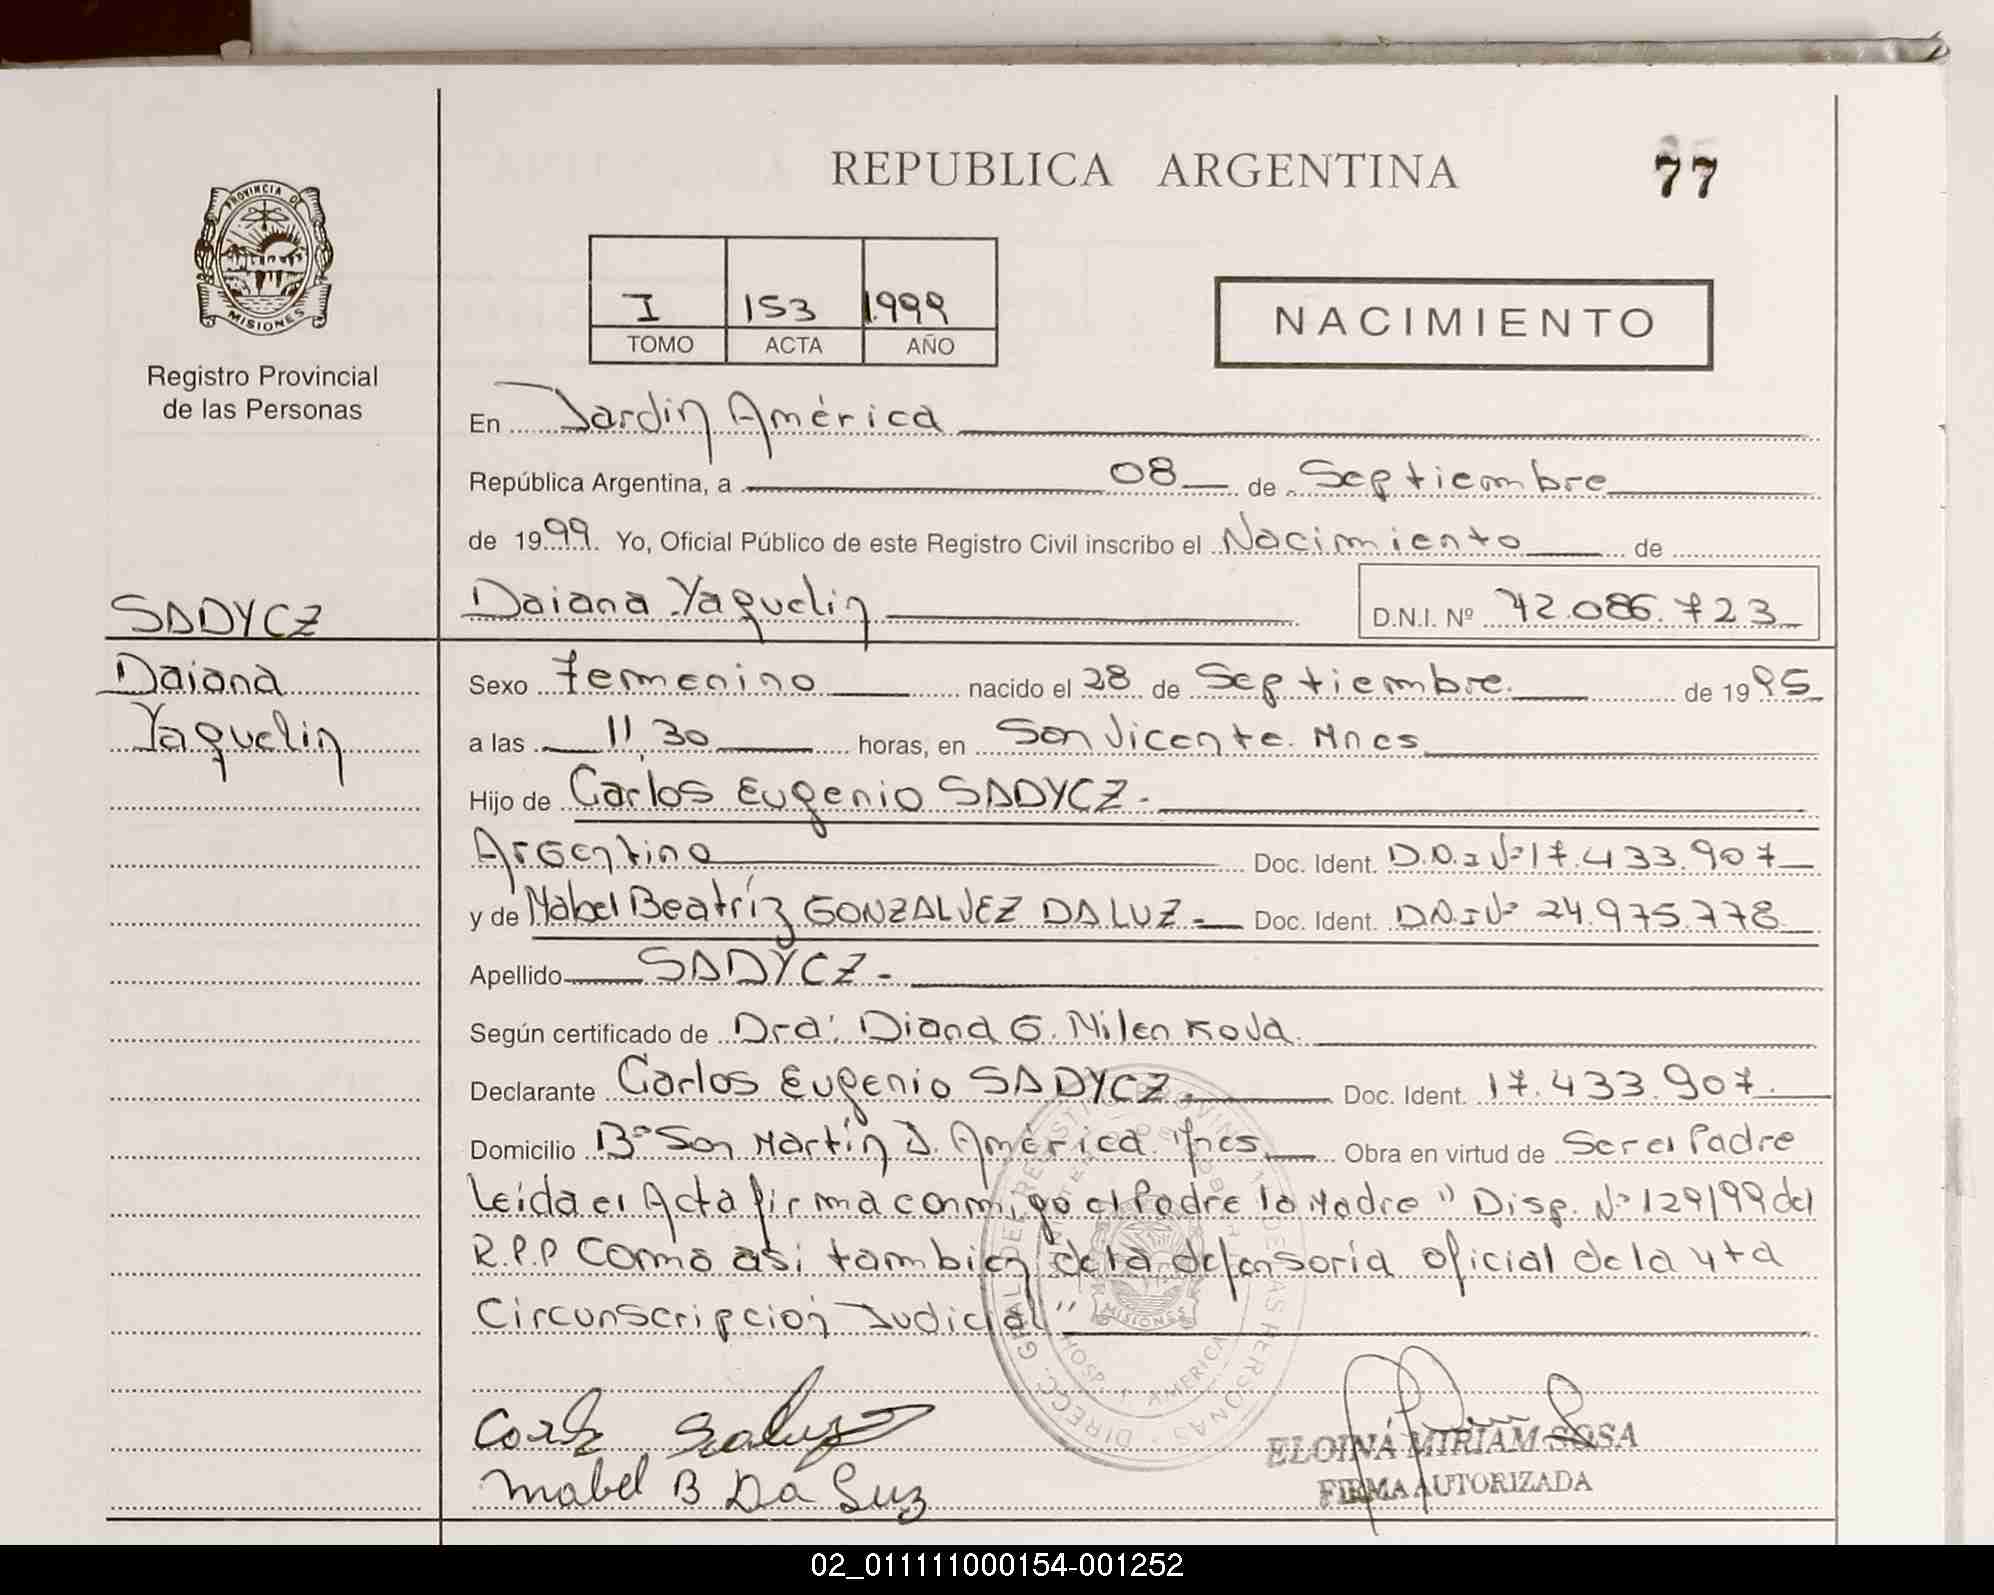 REPUBLICA ARGENTINA
77
PROVINCIA DE
MISIONES
Registro Provincial
de las Personas
I 153 1.999
TOMO ACTA AÑO
NACIMIENTO
En Jardin América
República Argentina, a 08 de Septiembre
de 1999. Yo, Oficial Público de este Registro Civil inscribo el Nacimiento de
SADYCZ
Daiana Yaquelin D.N.I. Nº 42.086.723
Daiana
Yaquelin
Sexo Femenino nacido el 28 de Septiembre de 1995
a las 11,30 horas, en San Vicente. Mnes
Hijo de Carlos Eugenio SADYCZ.
Argentino Doc. Ident. D.N.I Nº 17.433.907
y de Mabel Beatríz GONZALVEZ DA LUZ. Doc. Ident. D.N.I Nº 24.975.778
Apellido SADYCZ.
Según certificado de Dra. Diana G. Milenkova.
Declarante Carlos Eugenio SADYCZ. Doc. Ident. 17.433.907.
Domicilio Bº San Martín J. América. Mnes Obra en virtud de Ser el Padre
Leída el Acta firma conmigo el Padre la Madre " Disp. Nº 129/99 del
R.P.P Como asi tambien de la defensoría oficial de la 4ta
Circunscripción Judicial"
DIRECC. GRAL. DEL REGISTRO PROVINCIAL DE LAS PERSONAS
HOSP. J. AMERICA
MISIONES
Mabel B Da Luz
ELOINA MIRIAM SOSA
FIRMA AUTORIZADA
02_011111000154-001252